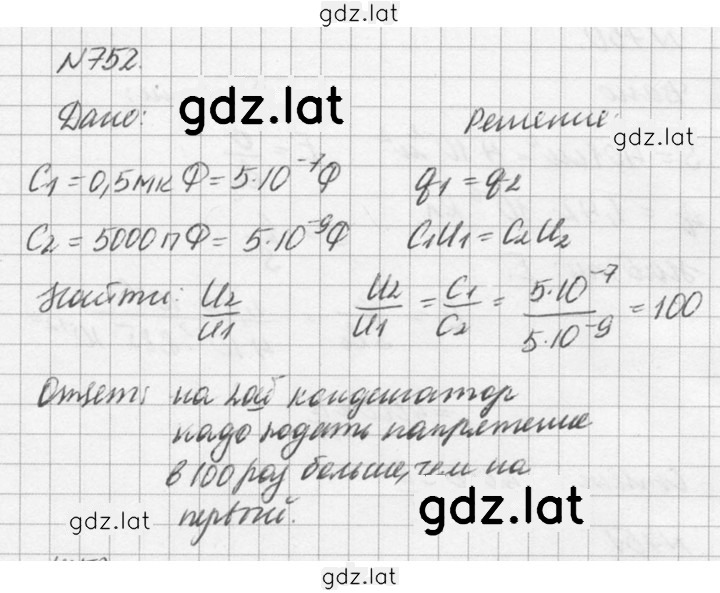 gdz.lat
N752.
Дано: gdz.lat Решение: gdz.lat
C1 = 0,5 мк Ф = 5·10⁻⁷Ф q1 = q2
C2 = 5000 пФ = 5·10⁻⁹Ф C1U1 = C2U2
Найти: U2/U1 U2/U1 = C1/C2 = 5·10⁻⁷/5·10⁻⁹ = 100
Ответ: на 2ой конденсатор
надо подать напряжение
в 100 раз больше, чем на
первый.
gdz.lat gdz.lat
gdz.lat